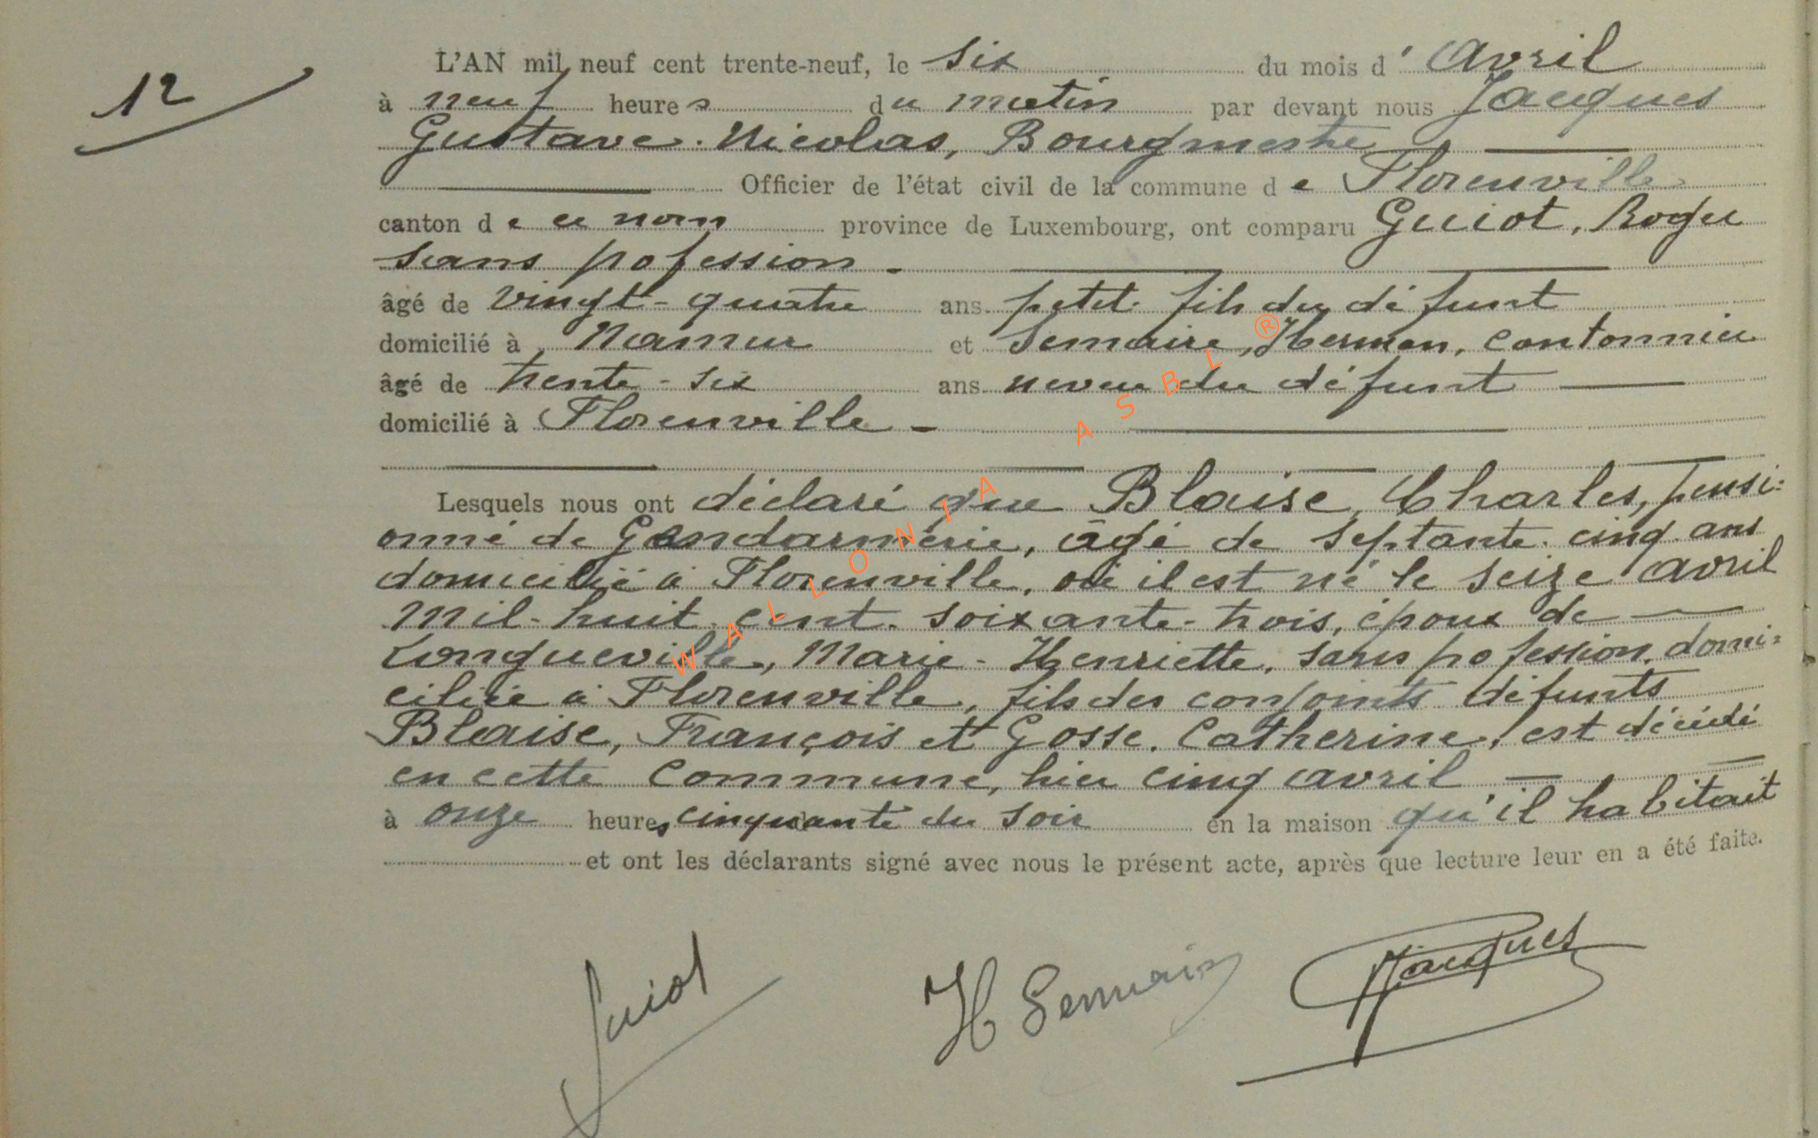 12
L'AN mil neuf cent trente-neuf, le six du mois d' avril
à neuf heures du matin par devant nous Jacques
Gustave. Nicolas, Bourgmestre
Officier de l'état civil de la commune de Florenville
canton de ce nom province de Luxembourg, ont comparu Guiot, Roger
sans pofession -
âgé de vingt-quatre ans petit fils du défunt
domicilié à Namur et Semaire, Herman, cantonnier
âgé de trente-six ans neveu du défunt
domicilié à Florenville -
Lesquels nous ont déclaré que Blaise, Charles, pensi=
onné de Gendarmerie, âgé de septante-cinq ans
domicilié à Florenville, où il est né le seize avril
mil-huit-cent-soixante-trois, époux de
Longueville, Marie-Henriette, sans pofession, domi=
ciliée à Florenville, fils des conjoints défunts
Blaise, François et Gosse, Catherine, est décédé
en cette commune, hier cinq avril
à onze heures cinquante du soir en la maison qu'il habitait
et ont les déclarants signé avec nous le présent acte, après que lecture leur en a été faite.
Guiot H Semair Jacques
WALLONIA ASBL ®